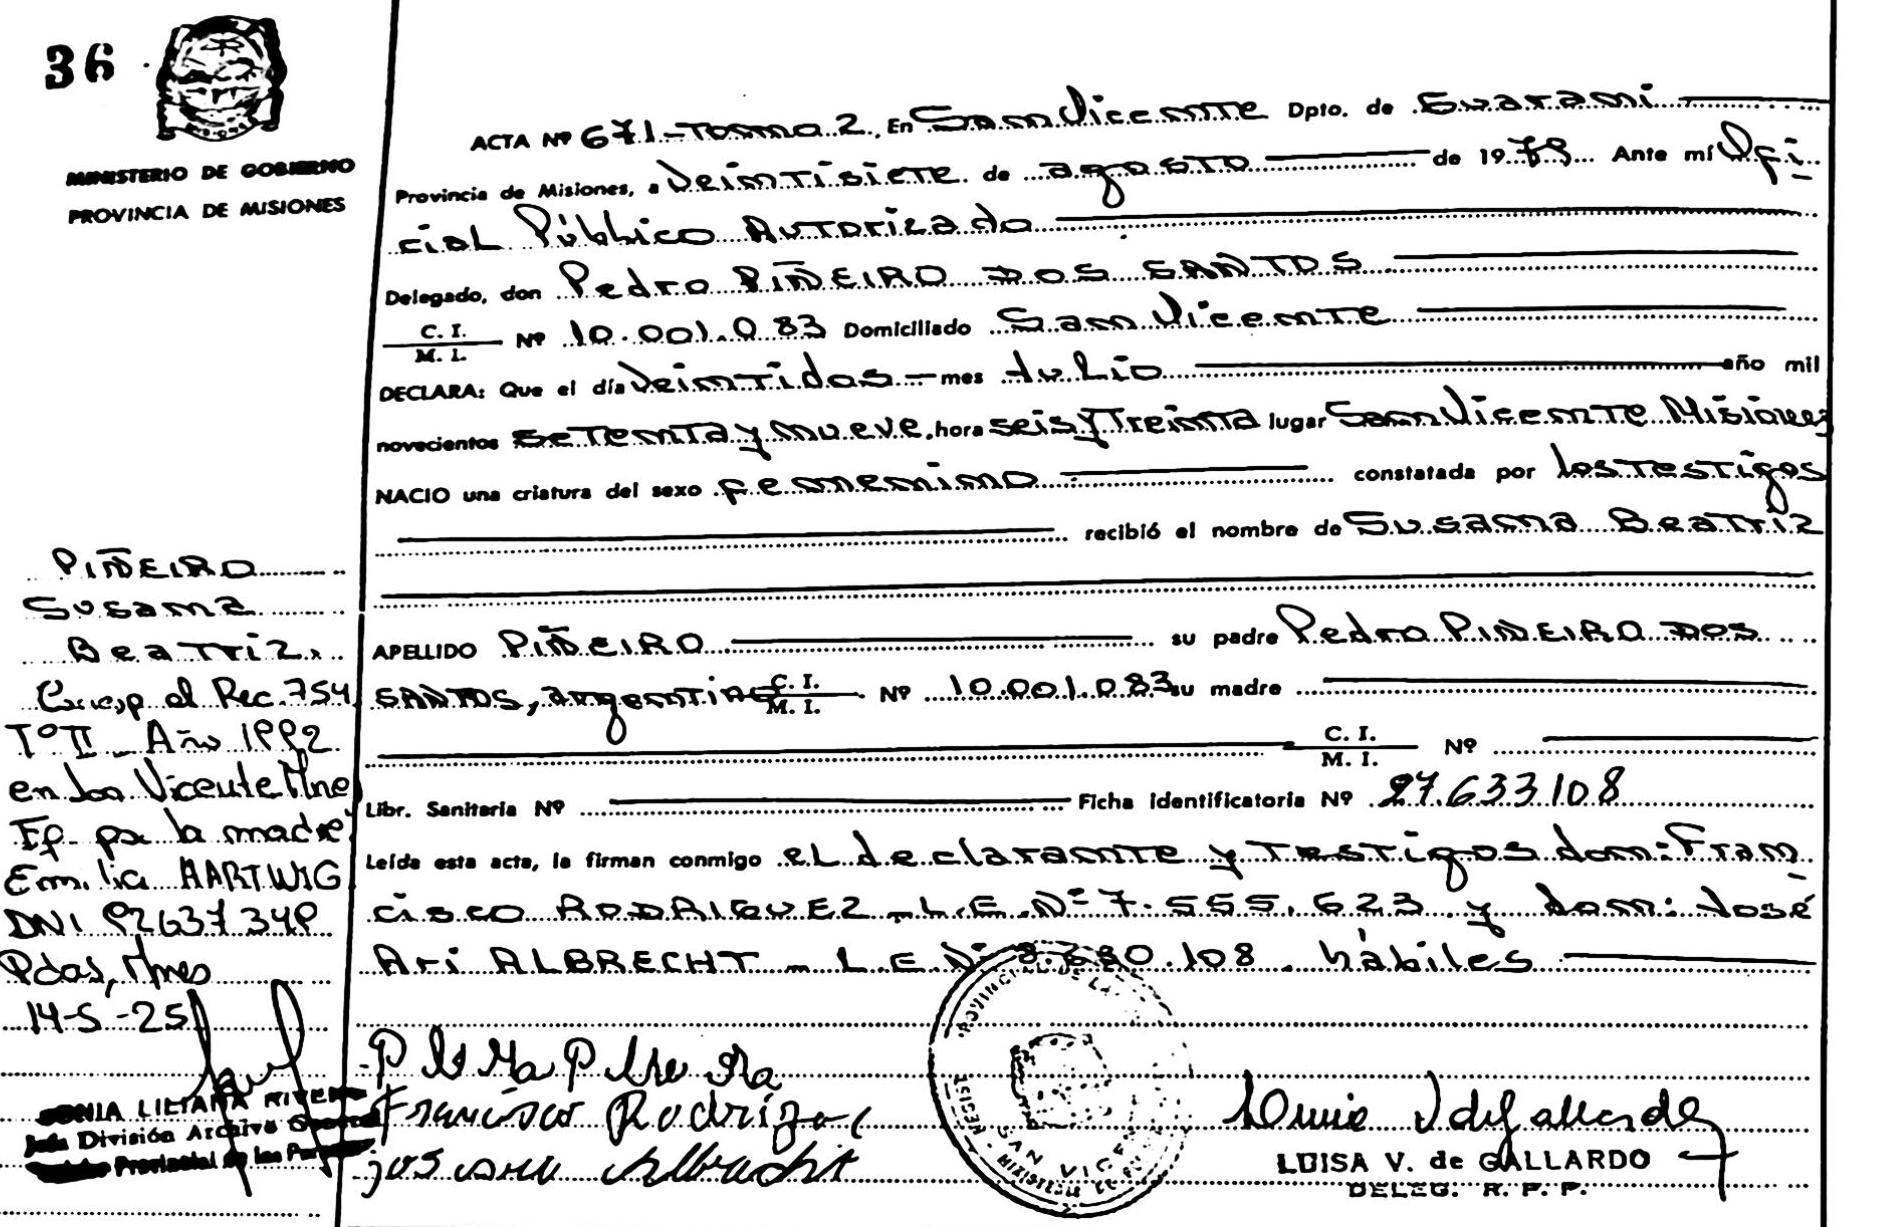 36
MINISTERIO DE GOBIERNO
PROVINCIA DE MISIONES
ACTA Nº 671-Tomo 2, En San Vicente Dpto. de Guarani
Provincia de Misiones, a Veintisiete de agosto de 1979 Ante mí Ofi
cial Público Autorizado
Delegado, don Pedro PIÑEIRO DOS SANTOS
C. I.
M. I. Nº 10.001.083 Domiciliado San Vicente
DECLARA: Que el día Veintidos mes Julio año mil
novecientos setenta y nueve, hora seis y Treinta lugar San Vicente Misiones
NACIO una criatura del sexo femenino constatada por los Testigos
recibió el nombre de Susana Beatriz
APELLIDO PIÑEIRO su padre Pedro PIÑEIRO DOS
SANTOS, argentino C. I.
M. I. Nº 10.001.083 su madre
C. I.
M. I. Nº
Libr. Sanitaria Nº Ficha identificatoria Nº 27.633108
Leída esta acta, la firman conmigo el declarante y Testigos don: Fran
cisco RODRIGUEZ - L.E. Nº 7.555.623 y don: José
Ari ALBRECHT - L.E. Nº .108. hábiles
PIÑEIRO
Susana
Beatriz.
al Rec. 754
Tº II - Año 1992
en San Vicente Mnes
por la madre
Emilia HARTWIG
DNI 92637349
Pdas, Mnes
14-5-25
SONIA LILIANA
Jefa División Archivo General
Provincial de las Personas
Francisco Rodriguez
Albrecht
SAN VICENTE
LUISA V. de GALLARDO
DELEG. R. P. P.